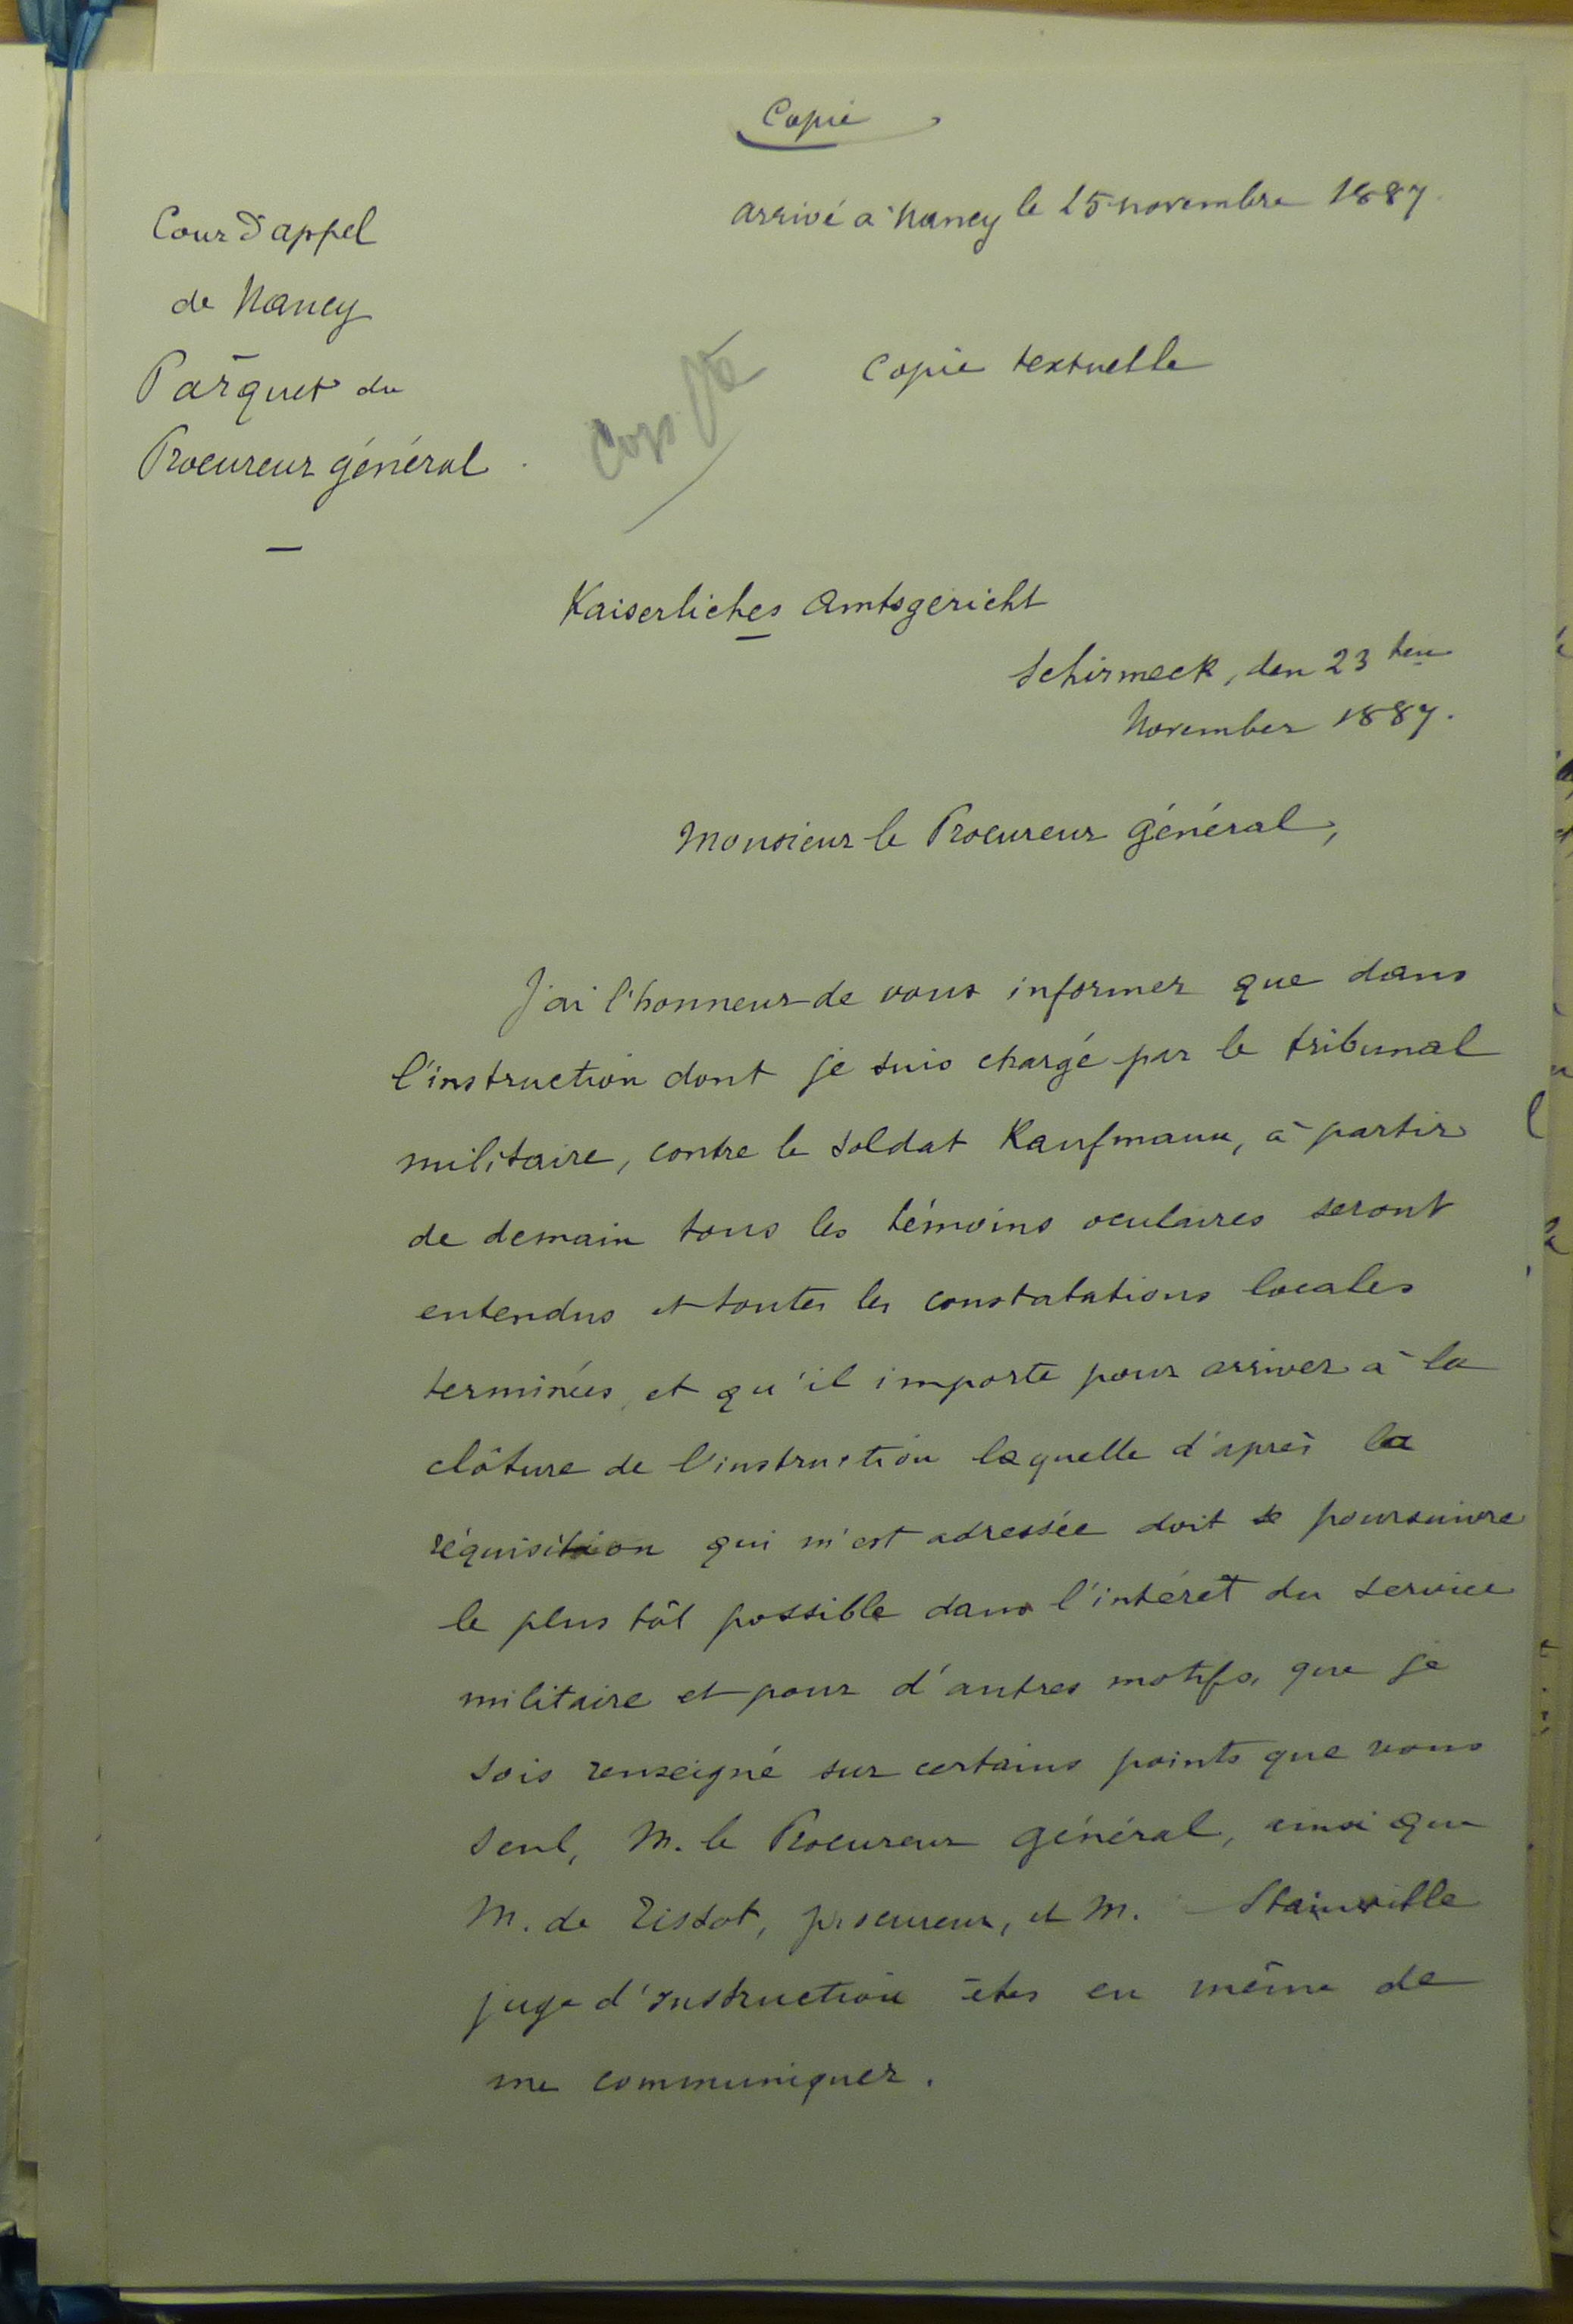 Copie
arrivé à Nancy le 25 novembre 1887.
Cour d'appel
de Nancy
Parquet du
Procureur général
Copie textuelle
Kaiserliches Amtsgericht
Schirmeck, den 23 ten
November 1887.
Monsieur le Procureur Général,
J'ai l'honneur de vous informer que dans
l'instruction dont je suis chargé par le tribunal
militaire, contre le soldat Kaufmann, à partir
de demain tous les témoins oculaires seront
entendus et toutes les constatations locales
terminées, et qu'il importe pour arriver à la
clôture de l'instruction laquelle d'après la
réquisition qui m'est adressée doit se poursuivre
le plus tôt possible dans l'intérêt du service
militaire et pour d'autres motifs, que je
sois renseigné sur certains points que vous
seul, M. le Procureur Général, ainsi que
M. de Tissot, procureur, et M. Stainville
juge d'instruction êtes en même de
me communiquer.